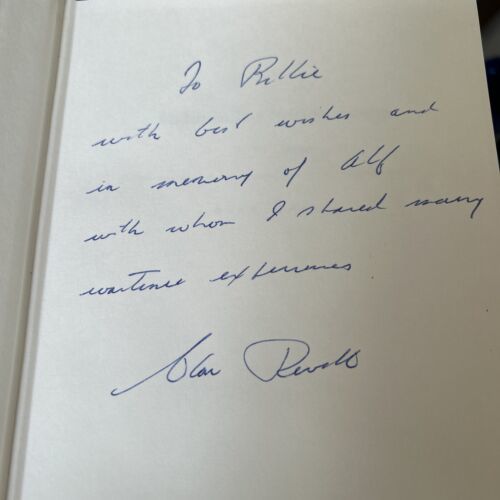 To Rillie
with best wishes and
in memory of Alf
with whom I shared many
wartime experiences